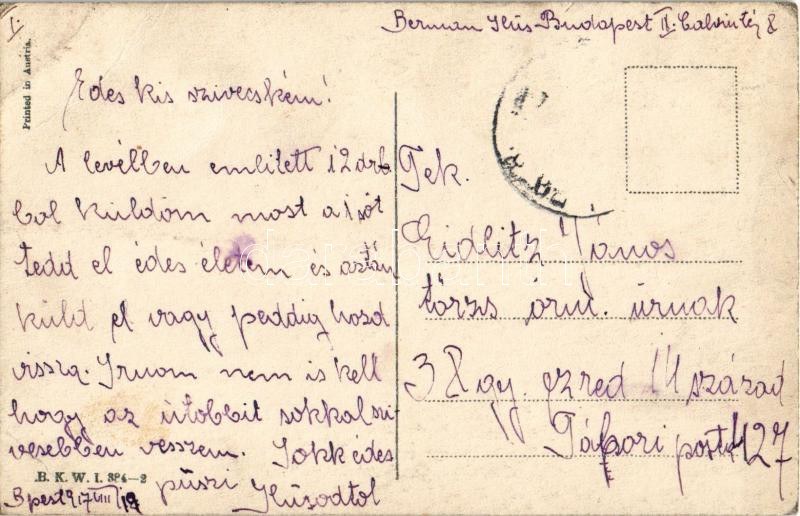 I.
Berman Ilus Budapest II. Calvin tér 8
Printed in Austria.
Édes kis szivecském!
A levélben emlitett 12 drb-
bol küldöm most a 1 sőt
tedd el édes életem és aztán
küld el vagy peddig hozd
vissza. Irnom nem is kell
hogy az utobbit sokkal szi-
vesebben veszem. Sokk édes
püszi Ilusodtol
B. K. W. I. 384-2
Bpest 917 VIII/19
Tek.
Eidlitz János
törzs őrm. urnak
38 gy. ezred 14 század
Tábori posta 427